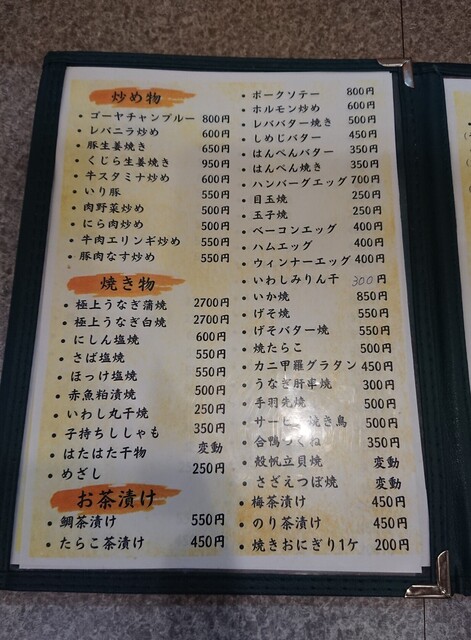 炒め物
・ゴーヤチャンプルー 800円
・レバニラ炒め 600円
・豚生姜焼き 650円
・くじら生姜焼き 950円
・牛スタミナ炒め 600円
・いり豚 550円
・肉野菜炒め 500円
・にら肉炒め 500円
・牛肉エリンギ炒め 550円
・豚肉なす炒め 550円
焼き物
・極上うなぎ蒲焼 2700円
・極上うなぎ白焼 2700円
・にしん塩焼 600円
・さば塩焼 550円
・ほっけ塩焼 550円
・赤魚粕漬焼 500円
・いわし丸干焼 250円
・子持ちししゃも 350円
・はたはた干物 変動
・めざし 250円
お茶漬け
・鯛茶漬け 550円
・たらこ茶漬け 450円
・ポークソテー 800円
・ホルモン炒め 600円
・レババター焼き 500円
・しめじバター 450円
・はんぺんバター 350円
・はんぺん焼き 350円
・ハンバーグエッグ 700円
・目玉焼 250円
・玉子焼 250円
・ベーコンエッグ 400円
・ハムエッグ 400円
・ウィンナーエッグ 400円
・いわしみりん干 300円
・いか焼 850円
・げそ焼 550円
・げそバター焼 550円
・焼たらこ 500円
・カニ甲羅グラタン 450円
・うなぎ肝串焼 300円
・手羽先焼 500円
・サービス焼き鳥 500円
・合鴨つくね 350円
・殻帆立貝焼 変動
・さざえつぼ焼 変動
・梅茶漬け 450円
・のり茶漬け 450円
・焼きおにぎり1ケ 200円